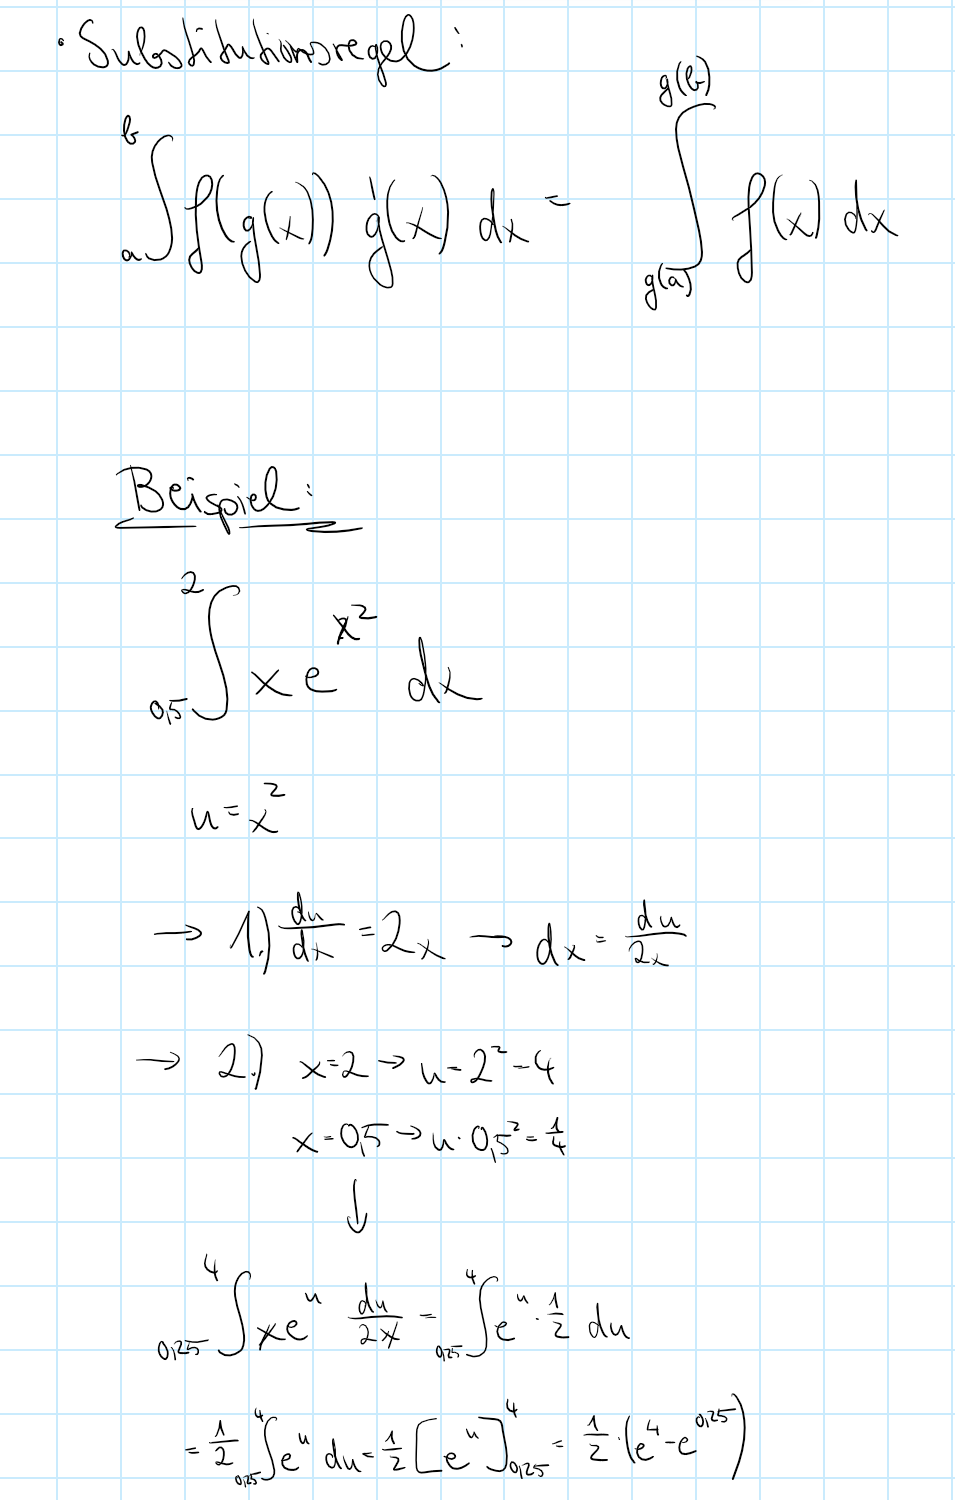 · Substitutionsregel:
∫_a^b f(g(x)) g'(x) dx = ∫_{g(a)}^{g(b)} f(x) dx
Beispiel:
∫_{0,5}^2 x e^{x^2} dx
u = x^2
→ 1.) du/dx = 2x → dx = du/2x
→ 2.) x=2 → u = 2^2 = 4
x = 0,5 → u = 0,5^2 = 1/4
↓
∫_{0,25}^4 x e^u du/2x = ∫_{0,25}^4 e^u · 1/2 du
= 1/2 ∫_{0,25}^4 e^u du = 1/2 [e^u]_{0,25}^4 = 1/2 · (e^4 - e^{0,25})